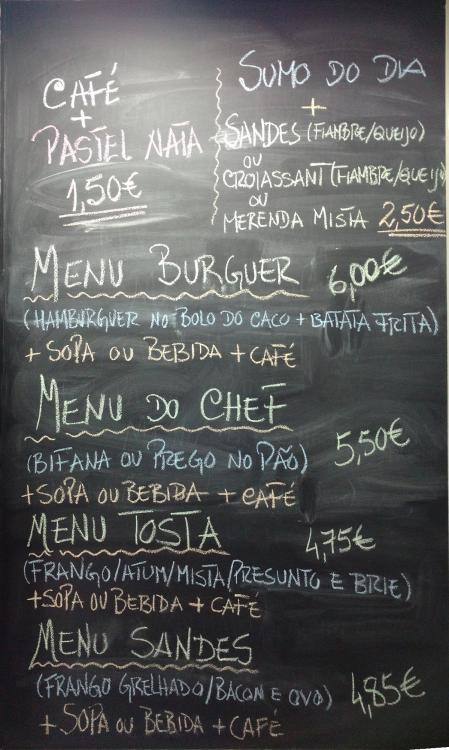 CAFÉ
+
PASTEL NATA
1,50€
SUMO DO DIA
+
SANDES (FIAMBRE/QUEIJO)
OU
CROIASSANT (FIAMBRE/QUEIJO)
OU
MERENDA MISTA 2,50€
MENU BURGUER 6,00€
(HAMBURGUER NO BOLO DO CACO + BATATA FRITA)
+ SOPA OU BEBIDA + CAFÉ
MENU DO CHEF
5,50€
(BIFANA OU PREGO NO PÃO)
+ SOPA OU BEBIDA + CAFÉ
MENU TOSTA 4,75€
(FRANGO/ATUM/MISTA/PRESUNTO E BRIE)
+ SOPA OU BEBIDA + CAFÉ
MENU SANDES
(FRANGO GRELHADO/BACON E OVO) 4,85€
+ SOPA OU BEBIDA + CAFÉ